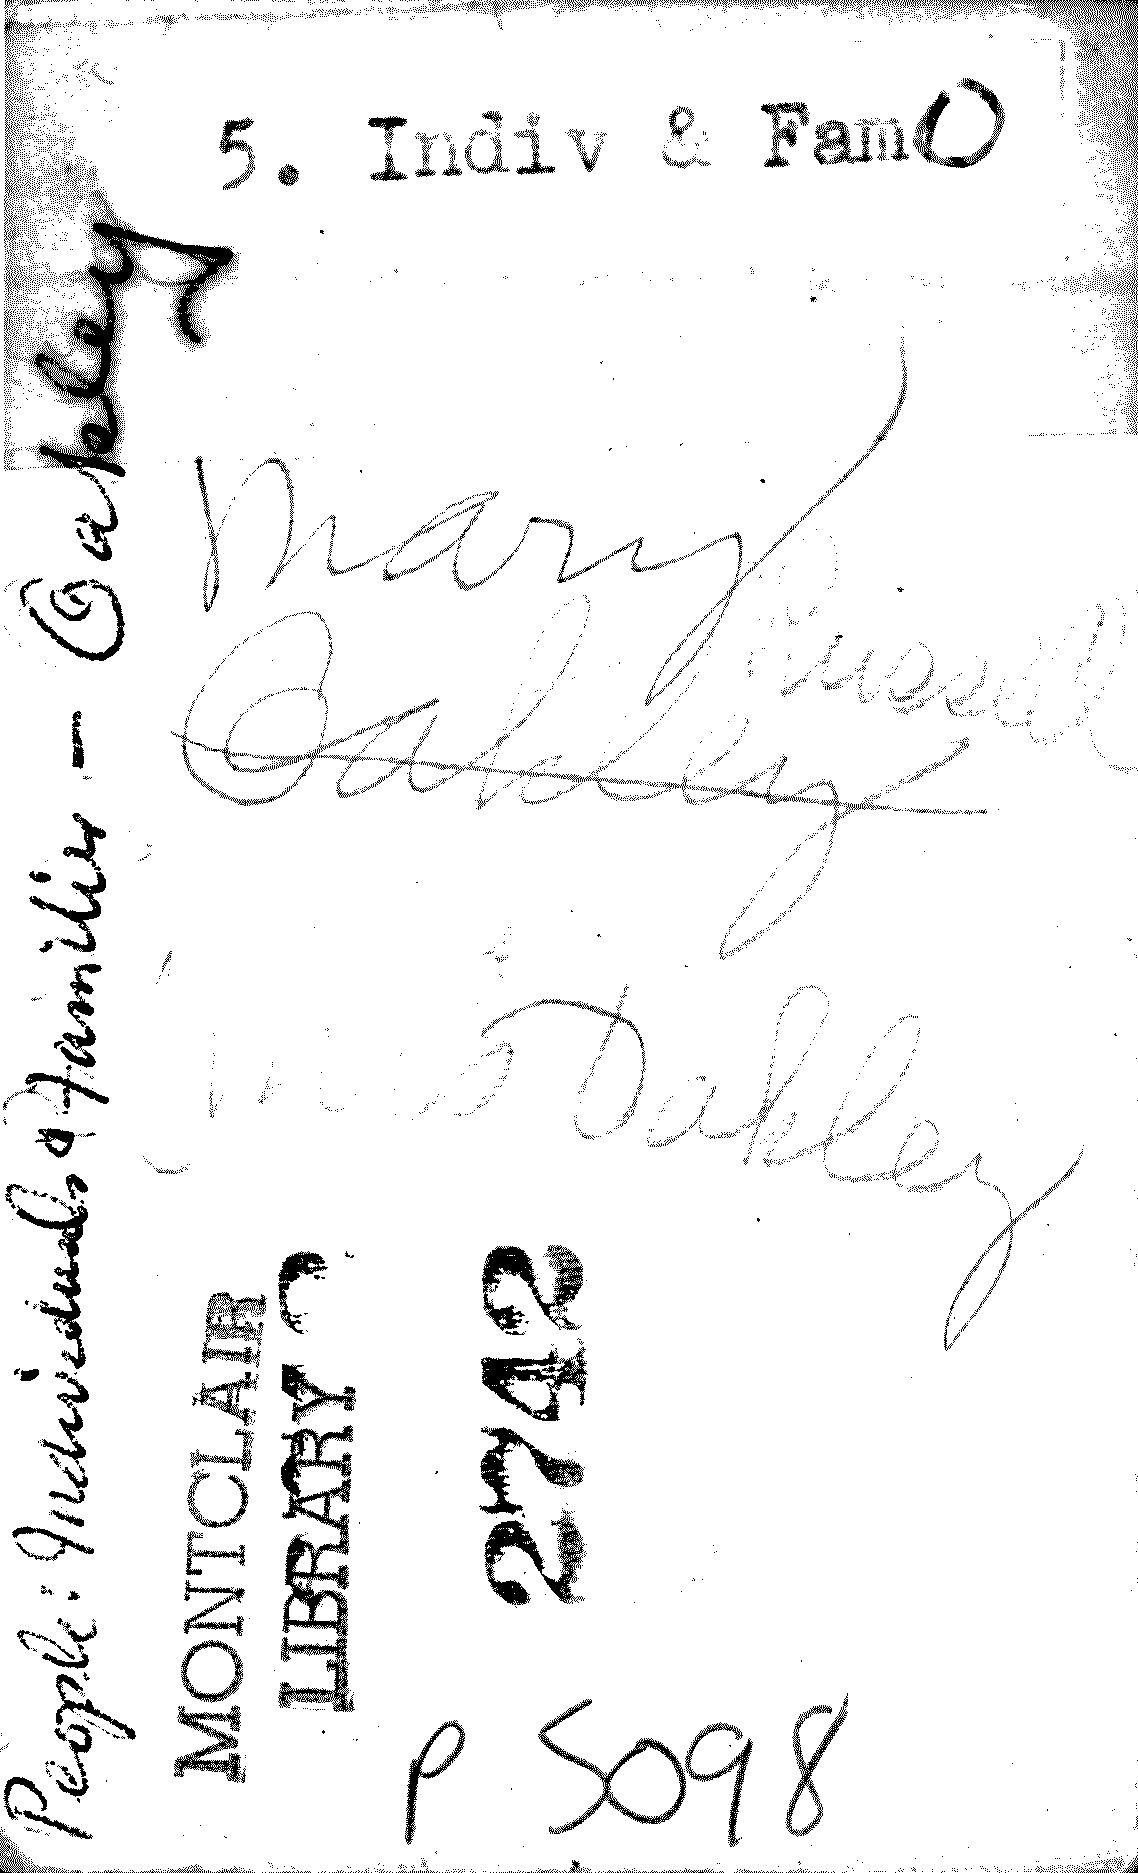 5. Indiv & Fam O
People: Individuals & Families - Oakley
Mary
Russell
Oakley
Miss Oakley
MONTCLAIR
LIBRARY
2742
P 5098